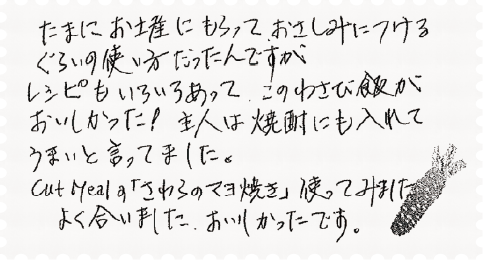 たまにお土産にもらって、おさしみにつける
ぐらいの使い方だったんですが
レシピもいろいろあって、このわさび飯が
おいしかった! 主人は焼酎にも入れて
うまいと言ってました。
Cut Mealの「さわらのマヨ焼き」使ってみました
よく合いました、おいしかったです。